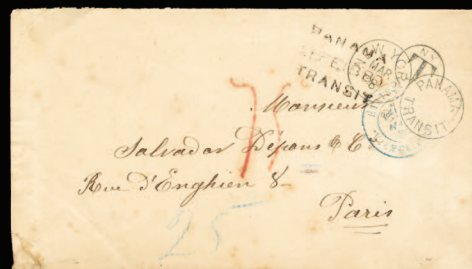 PANAMA
TRANSIT
N. YORK
MAR
NY
PANAMA
TRANSIT
75
Monsieur
Salvador Dépaus & Cº
Rue d'Enghien 8
Paris
25